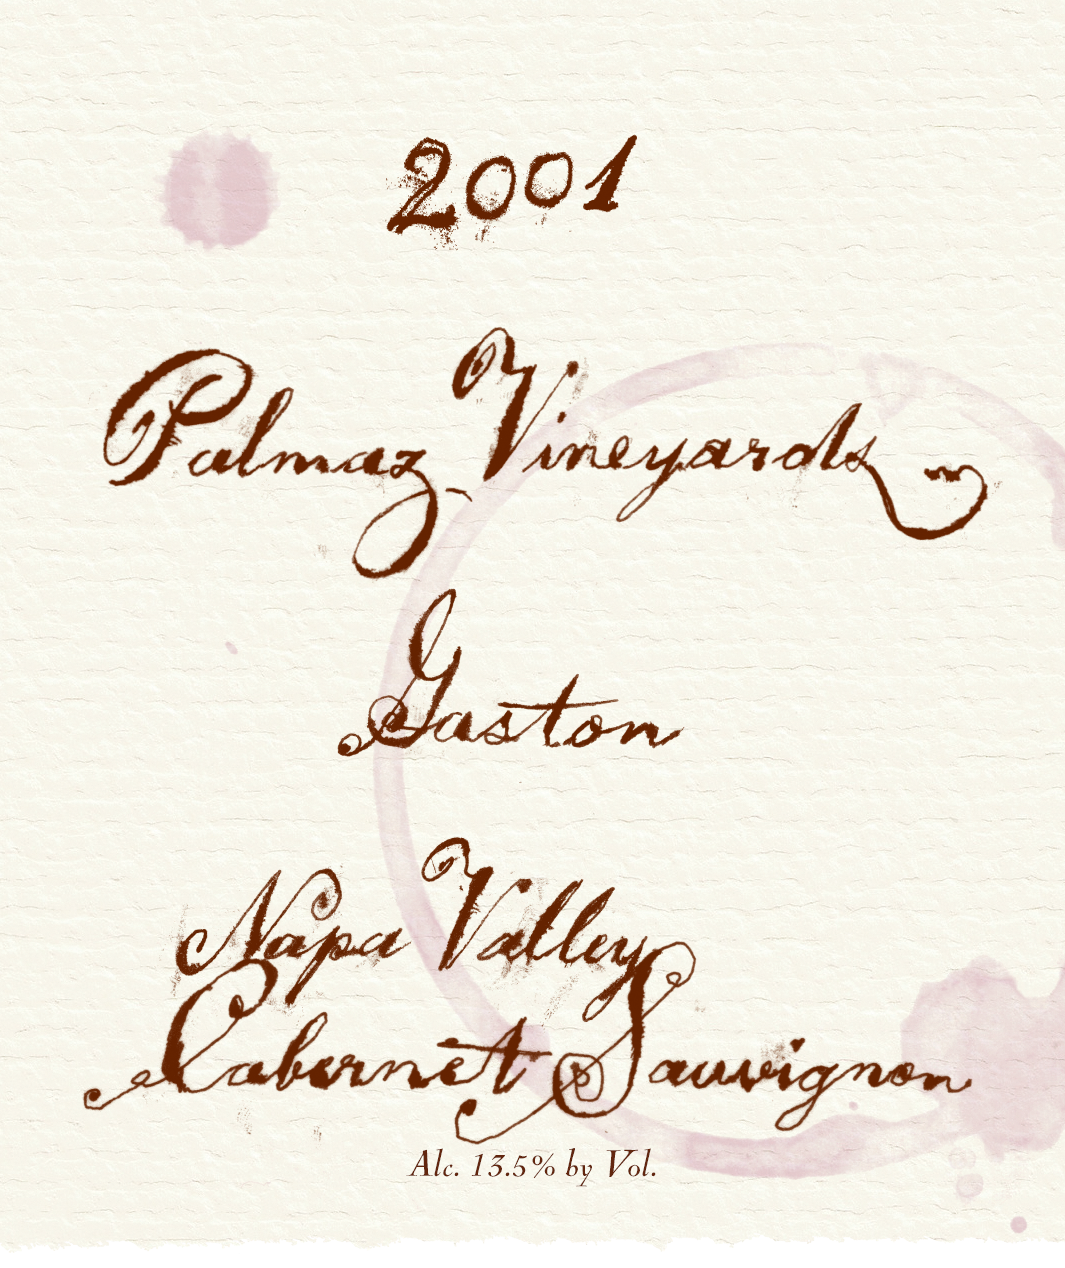 2001
Palmaz Vineyards
Gaston
Napa Valley
Cabernet Sauvignon
Alc. 13.5% by Vol.